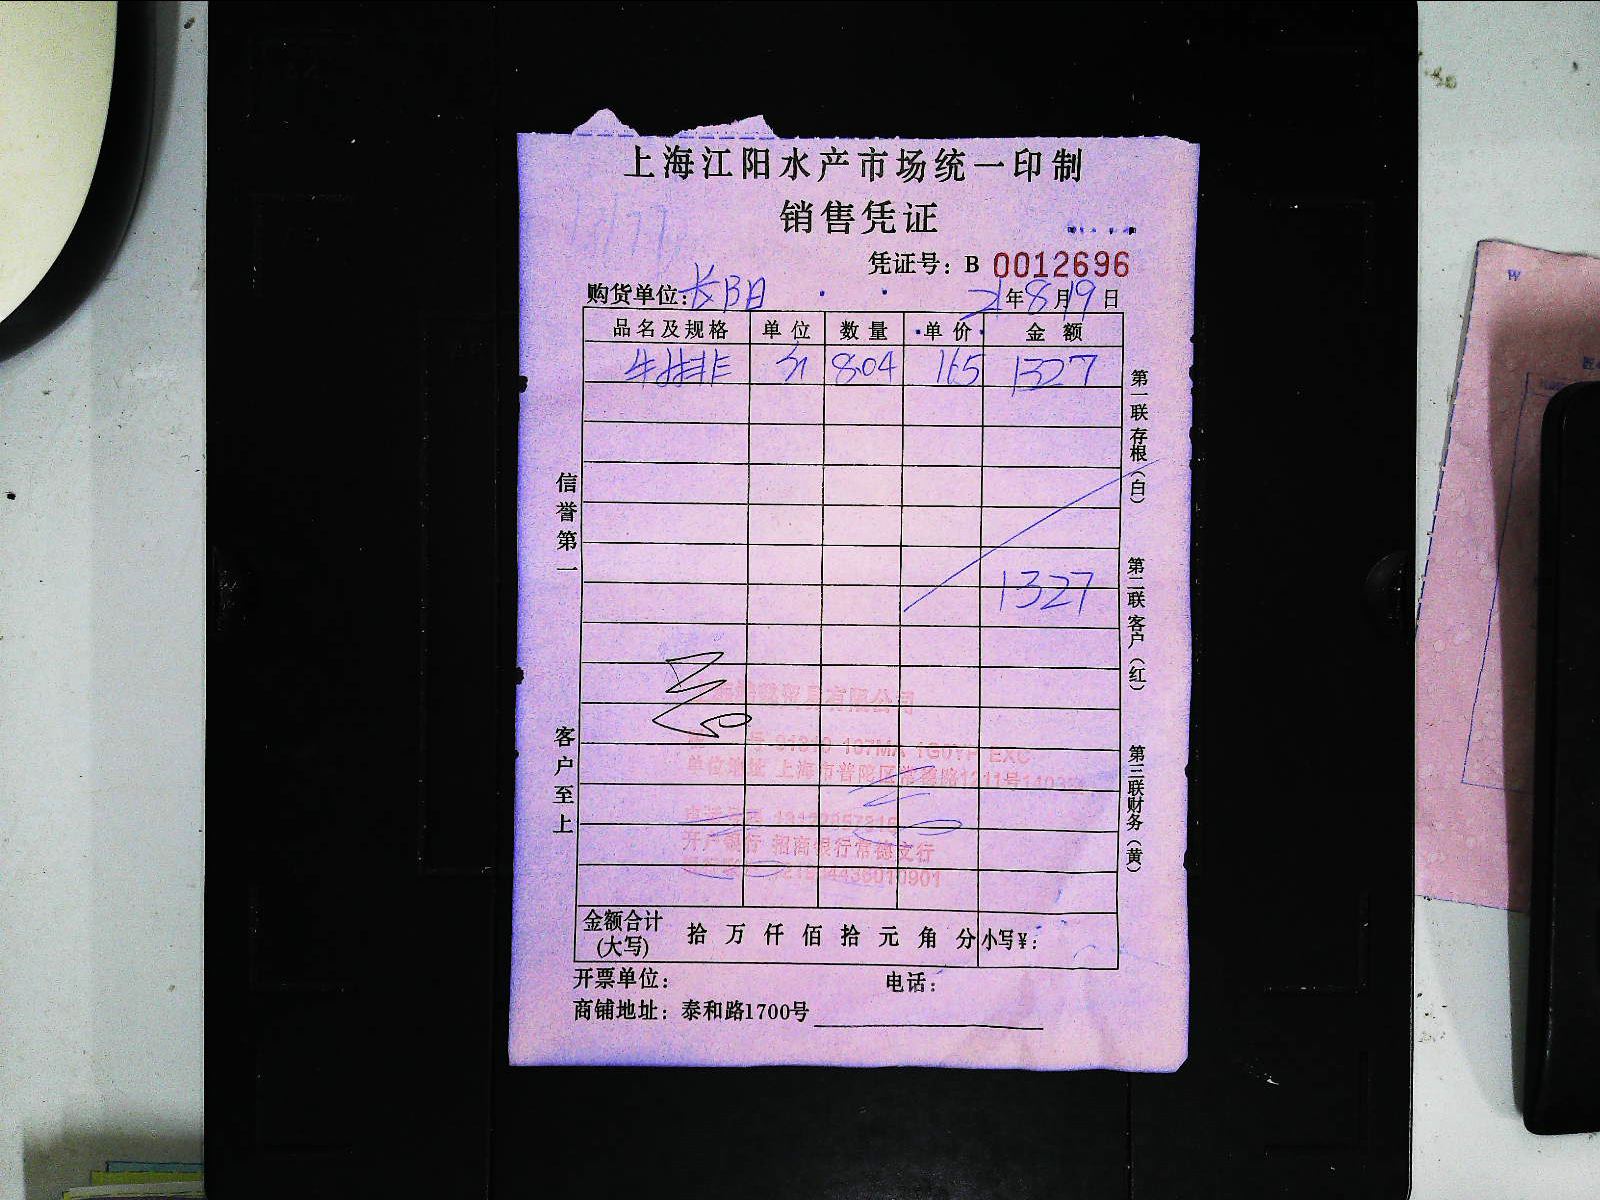 上海江阳水产市场统一印制
销售凭证
凭证号：B 0012696
购货单位：长阳 21年8月19日
品名及规格 单位 数量 单价 金额
牛排 8.04 165 1327
1327
信誉第一
客户至上
第一联存根（白）
第二联客户（红）
第三联财务（黄）
贸易有限公司
单位地址 上海市普陀区常德路1211号
开户银行 招商银行常德支行
金额合计(大写) 拾 万 仟 佰 拾 元 角 分 小写￥：
开票单位： 电话：
商铺地址：泰和路1700号